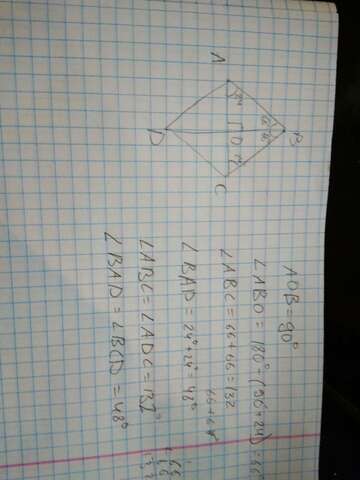 A
24°
66°
66°
B
O
24°
D
C
AOB = 90°
∠ABO = 180° - (90 + 24) = 66
∠ABC = 66 + 66 = 132
66 + 66
∠BAD = 24° + 24° = 48°
∠ABC = ∠ADC = 132°
∠BAD = ∠BCD = 48°
66
66